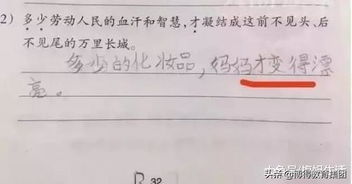 2）多少劳动人民的血汗和智慧,才凝结成这前不见头、后
不见尾的万里长城。
多少的化妆品，妈妈才变得漂
亮。
32
头条 @博得教育集团